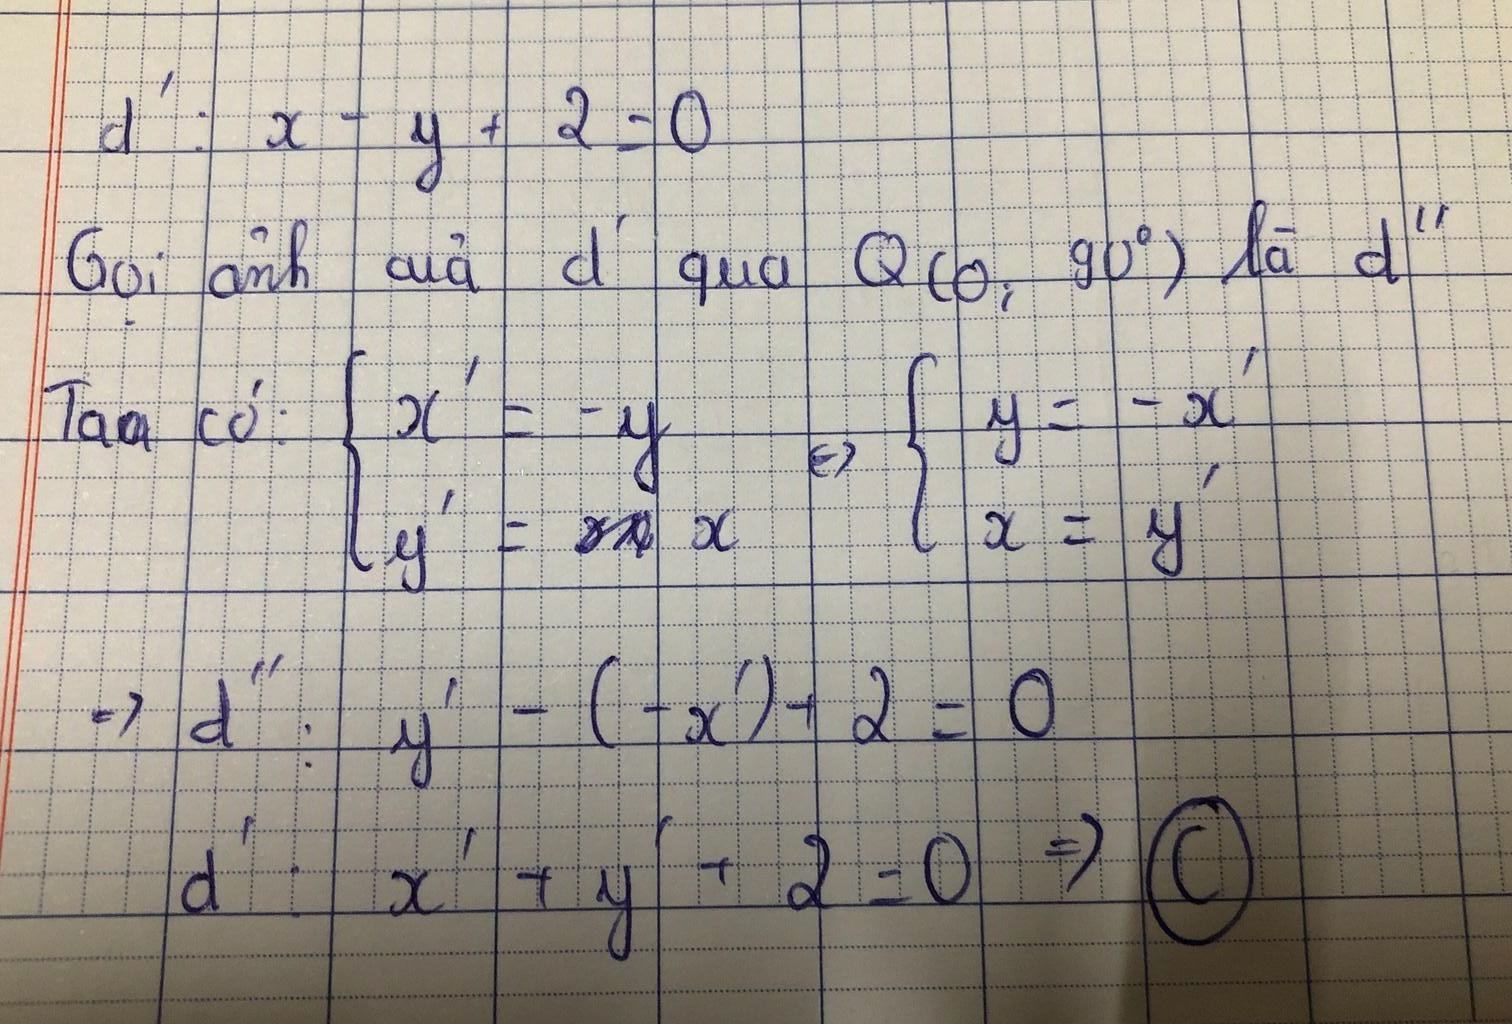 d' : x - y + 2 = 0
Gọi ảnh cuả d' qua Q(O; 90°) là d''
Taa có: { x' = -y <=> { y = -x'
y' = x x = y'
=> d'' : y' - (-x') + 2 = 0
d' : x' + y' + 2 = 0 => C